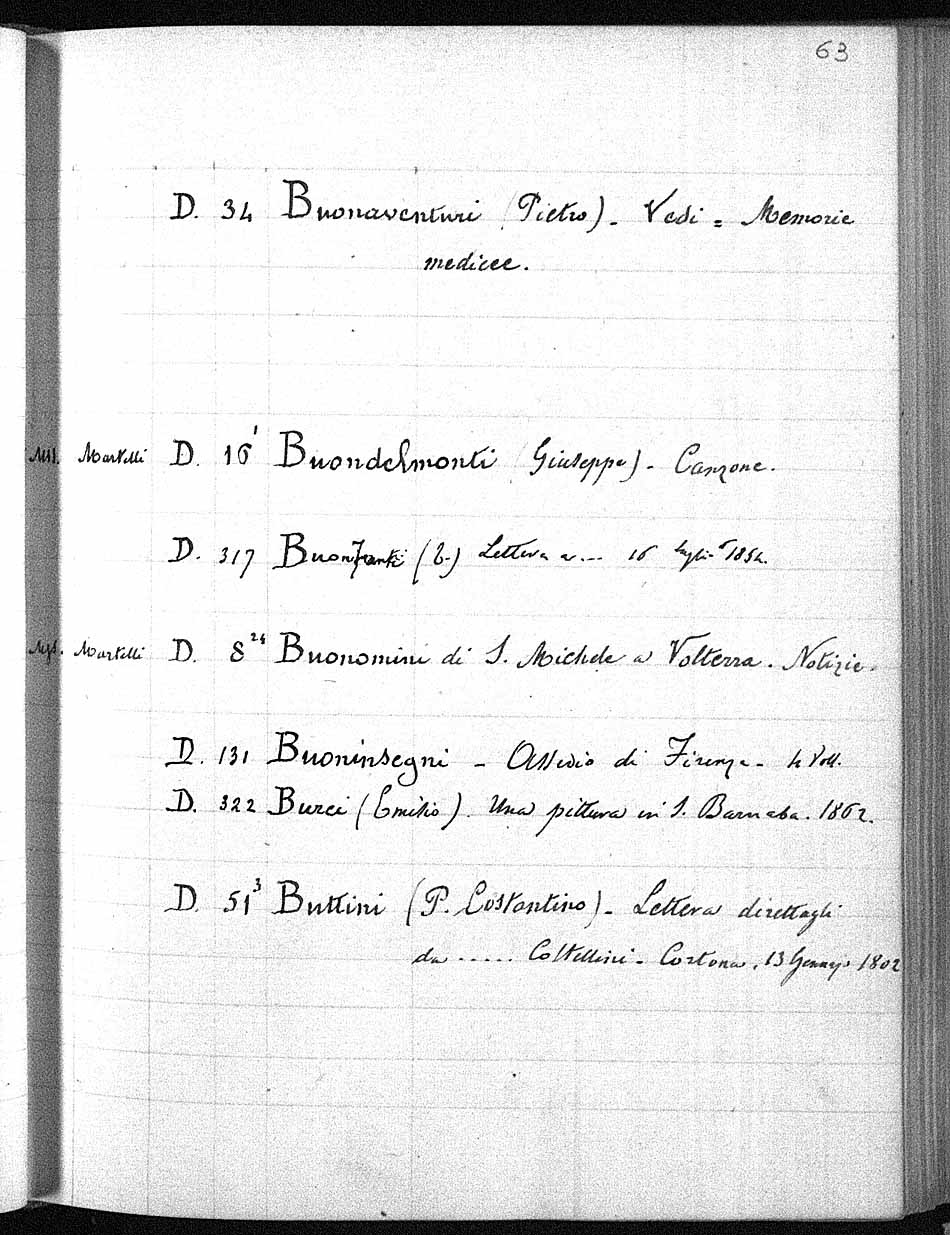 63
D. 34 Buonaventuri (Pietro) - Vedi = Memorie
medicee.
Mss. Martelli D. 16¹ Buondelmonti (Giuseppe) - Canzone.
D. 317 (E.) Lettera a ... 16 1854.
Mss. Martelli D. 8²⁴ Buonomini di S. Michele a Volterra. Notizie.
D. 131 Buoninsegni - Assedio di Firenze - 4 Voll.
D. 322 Burci (Emilio). Una pittura in S. Barnaba. 1862.
D. 51³ Buttini (P. Costantino) - Lettera direttagli
da ..... Coltellini - Cortona, 13 Gennajo 1802